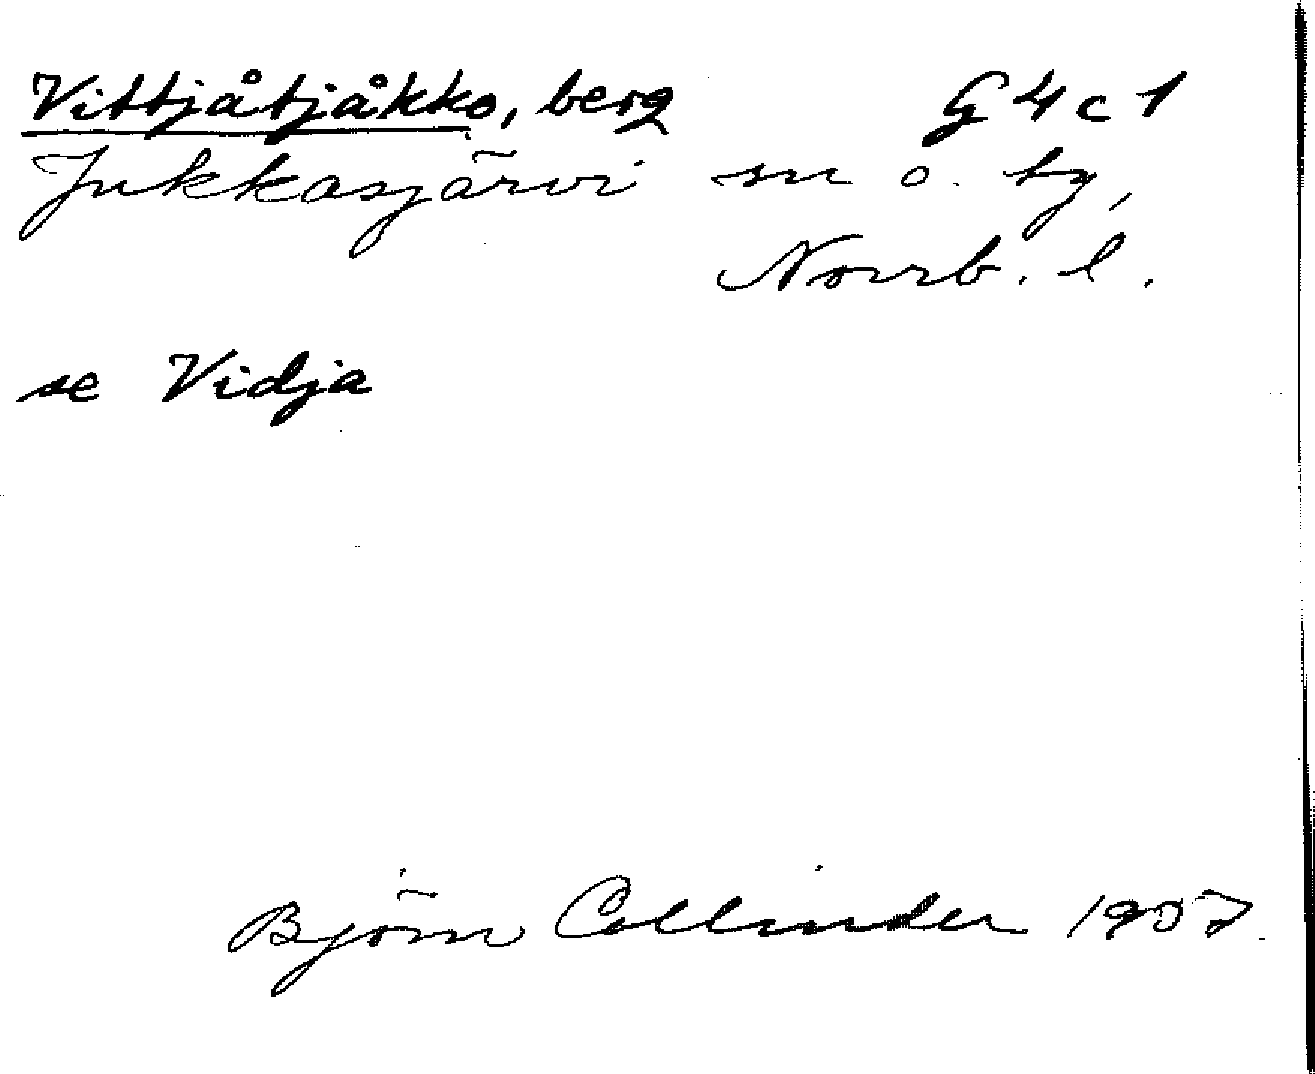 Vittjåtjåkko, berg G 4 c 1
Jukkasjärvi sn o. by,
Norrb. l.
se Vidja
Björn Collinder 1957.